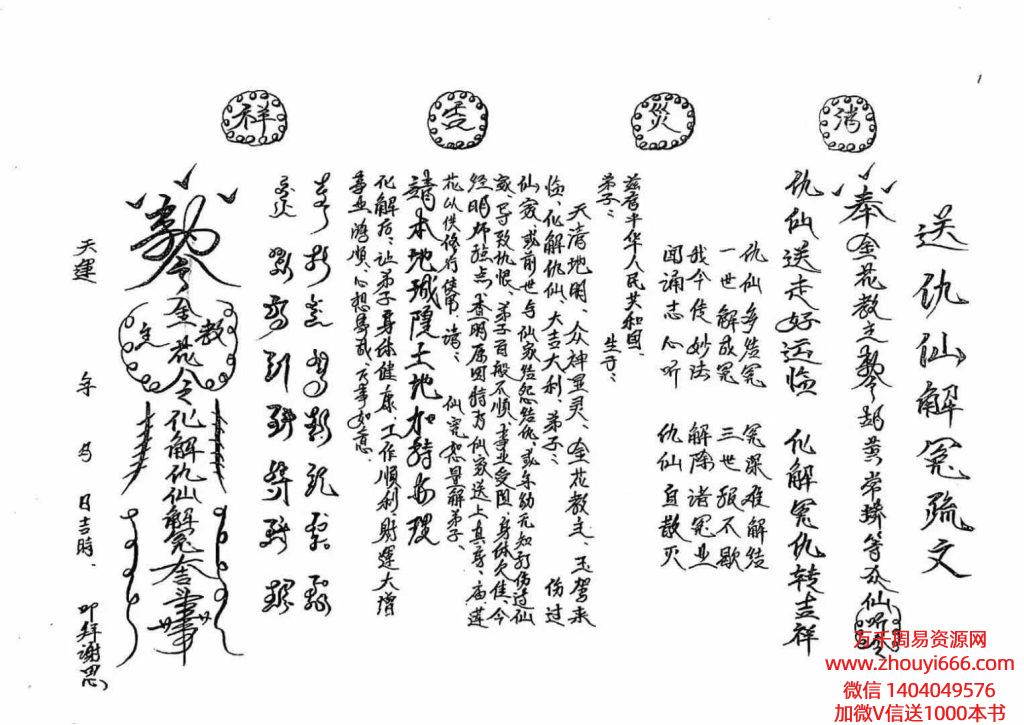 1
消 災 吉 祥
送仇仙解冤疏文
奉金花教主勅令胡黄常蟒等众仙听令
仇仙送走好运临 化解冤仇转吉祥
仇仙多结冤 冤深难解结
一世解成冤 三世报不歇
我今传妙法 解除诸冤业
闻诵志心听 仇仙自散灭
兹有中华人民共和国
弟子: 生于:
天清地明、众神显灵、金花教主、玉驾来
临、化解仇仙、大吉大利、弟子: 伤过
仙家、或前世与仙家结怨结仇、或年幼无知打伤过仙
家、导致仇恨、弟子百般不顺、事业受阻、身体欠佳、今
经明师指点、查明原因特为仙家送上真身、庙莲
花以供修行使用、请: 仙宽恕谅解弟子、
请本地城隍土地加持办理
化解后: 让弟子身体健康、工作顺利、财运大增
事业鸿顺、心想事成、万事如意.
勅令金花教主令化解仇仙解冤
天運 年 月 日吉時. 叩拜謝恩
万千周易资源网
www.zhouyi666.com
微信 1404049576
加微V信送1000本书